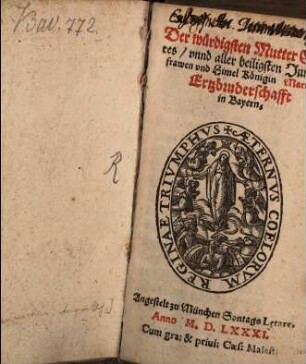 Bav. 772.
R
Der würdigsten Mutter
tes / vnnd aller heiligsten Jun
frawen vnd Himel Königin
Ertzbruderschafft
in Bayern.
REGINAE TRIVMPHVS ✠ AETERNVS COELORVM
Angestelt zu München Sontags Letare.
Anno M. D. LXXXI.
Cum gra: & priui: Cæs: Maiest: